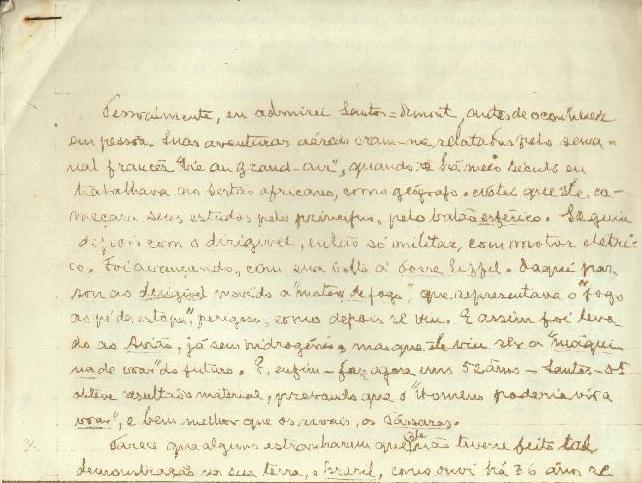 Pessoalmente, eu admirei Santos=Dumont, antes de o conhecer
em pessoa. Suas aventuras aéreas eram-me relatadas pelo sema-
nal francês "Vie au grand-air", quando há meio século eu
trabalhava no sertão africano, como geógrafo. Notei que ele, co-
meçara seus estudos pelo princípio, pelo balão esférico. Seguiu
depois com o dirigivel, então só militar, com motor elétri-
co. Foi avançando, com sua volta á Torre Eiffel. Daqui pas-
sou ao dirigivel movido a "motor de fogo", que representava o "fogo
ao pé da estopa", perigoso, como depois se viu. E assim foi leva-
do ao Avião, já sem hidrogénio, mas que ele viu ser a "máqui-
na de voar" do futuro. E, enfim - faz agora uns 52 anos - Santos-Dt
obteve resultado material, provando que o "Homem poderia vir a
voar", e bem melhor que os rivais, os Pássaros.
Parece que alguns estranharam que ele não tivesse feito tal
demonstração na sua terra, o Brasil, como ouvi há 36 anos se